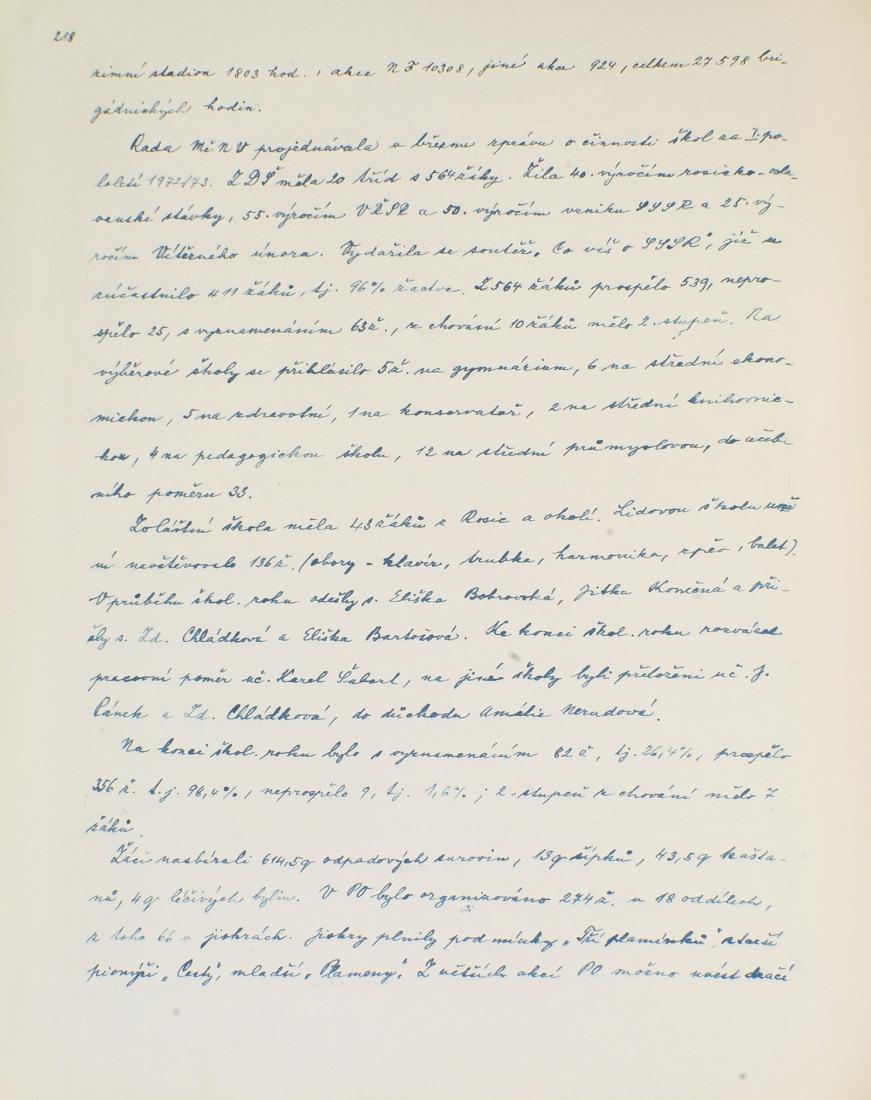 218
zimní stadion 1803 hod., akce NF 10308, jiné akce 924, celkem 27598 bri-
gádnických hodin.
Rada MěNV projednávala v březnu zprávu o činnosti škol za I. po-
loletí 1972/73. ZDŠ měla 20 tříd s 564 žáky. Žila 40. výročím rosicko-osla-
vanské stávky, 55. výročím VŘSR a 50. výročím vzniku SSSR a 25. vý-
ročím Vítězného února. Vydařila se soutěž „Co víš o SSSR“, již se
zúčastnilo 411 žáků, tj. 96% žactva. Z 564 žáků prospělo 539, nepro-
spělo 25, s vyznamenáním 63 ž., z chování 10 žáků mělo 2. stupeň. Na
výběrové školy se přihlásilo 5 ž. na gymnázium, 6 na střední ekono-
mickou, 5 na zdravotní, 1 na konservatoř, 2 na střední knihovnic-
kou, 4 na pedagogickou školu, 12 na střední průmyslovou, do učeb-
ního poměru 33.
Zvláštní škola měla 43 žáků z Rosic a okolí. Lidovou školu umě
ní navštěvovalo 136 ž. (obory - klavír, trubka, harmonika, zpěv, balet).
V průběhu škol. roku odešly s. Eliška Bobrovská, Jitka Konečná a při-
šly s. Zd. Chládková a Eliška Bartošová. Ke konci škol. roku rozvázal
pracovní poměr uč. Karel Šabart, na jiné školy byli přeloženi uč. J.
Pánek a Zd. Chládková, do důchodu Amálie Nerudová.
Na konci škol. roku bylo s vyznamenáním 82 ž, tj. 26,4%, prospělo
356 ž. t.j. 98,4%, neprospělo 9, tj. 1,6%; 2. stupeň z chování mělo 7
žáků.
Žáci nasbírali 614,5q odpadových surovin, 13q šípků, 43,5q kašta-
nů, 4q léčivých bylin. V PO bylo organizováno 274 ž. v 18 oddílech,
z toho 66 v jiskrách. Jiskry plnily podmínky „Tří plamínků“, starší
pionýři „Cesty“, mladší „Plameny“. Z větších akcí PO možno uvést dračí